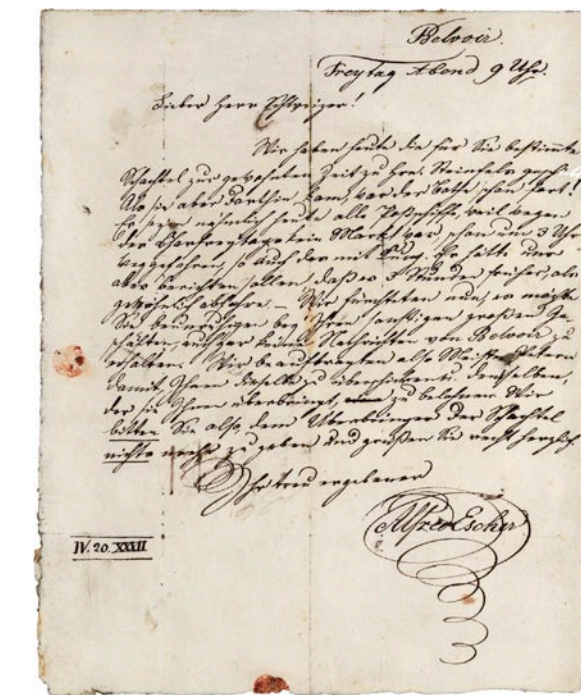 Belvoir.
Freytag Abend 9 Uhr.
Lieber Herr Schweizer!
Wir haben heute die für Sie bestimmte
Schachtel zur gewohnten Zeit zu Frei Steinfels
Als sie aber dorthin kam, war der Bothe schon fort!
Es seyen nähmlich heute alle Postschiffe, weil wegen
des Charfreytags kein Markt war, schon um 3 Uhr
weggefahren, so auch der mit Er hätte uns
aber berichten sollen, daß er Stunden früher, als
gewöhnlich abfahre – Wir fürchteten nun, es möchte
Sie beunruhigen bey Ihren sonstigen großen Ge-
schäften, auch gar keine Nachrichten von Belvoir zu
erhalten. Wir beauftragten also
damit, Ihnen dieselbe zu überschicken u. denselben,
der sie Ihnen überbringt, zu belohnen. Wir
bitten Sie also, dem Überbringer der Schachtel
nichts mehr zu geben und grüßen Sie recht herzlich.
Ihr treu ergebener
Alfred Escher
IV. 20. XXXII